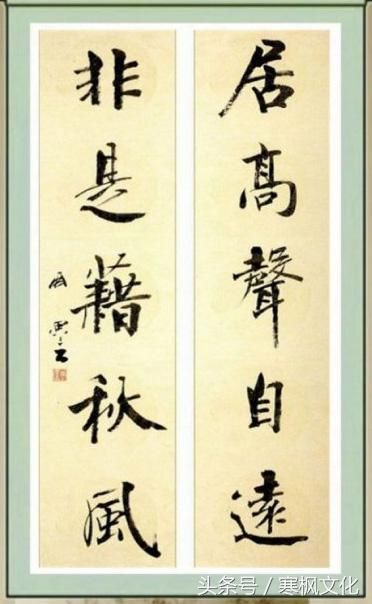 居髙聲自遠
非是藉秋風
头条号 / 寒枫文化